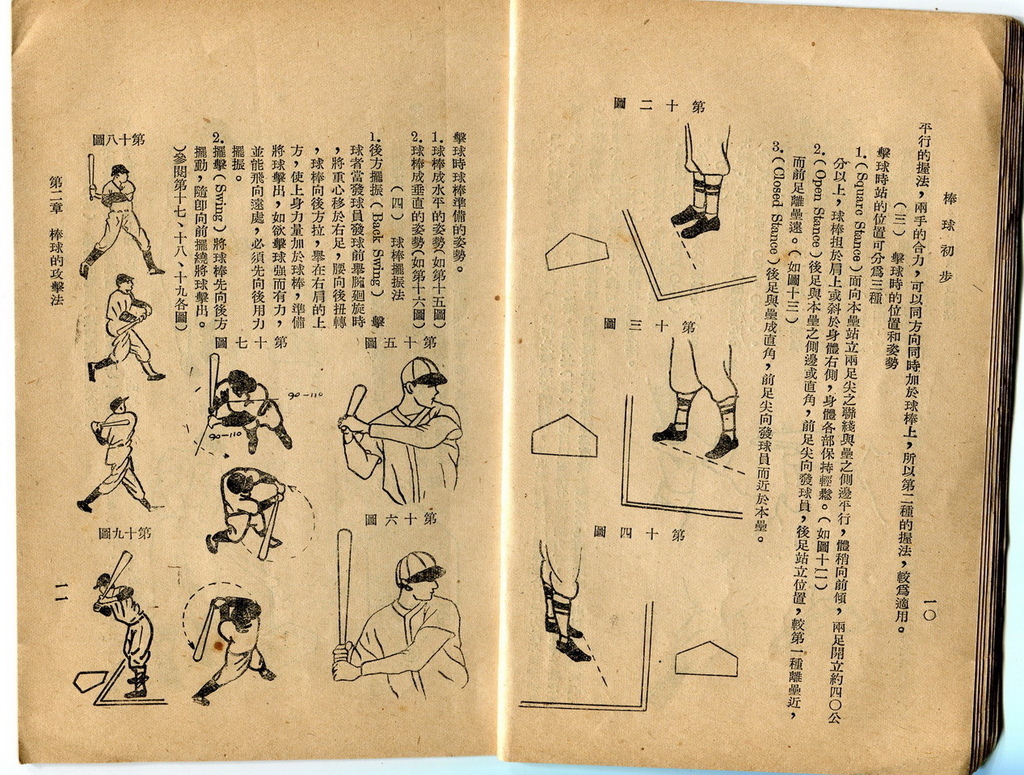 棒球初步
一〇
平行的握法，兩手的合力，可以同方向同時加於球棒上，所以第二種的握法，較爲適用。
（三）　擊球時的位置和姿勢
擊球時站的位置可分爲三種
1.(Square Stance)面向本壘站立兩足尖之聯綫與壘之側邊平行，體稍向前傾，兩足開立約四〇公
分以上，球棒担於肩上或斜於身體右側，身體各部保持輕鬆。（如圖十二）
2.(Open Stance)後足與本壘之側邊成直角，前足尖向發球員，後足站立位置，較第一種離壘近，
而前足離壘遠。（如圖十三）
3.(Closed Stance)後足與壘成直角，前足尖向發球員而近於本壘。
第十二圖
第十三圖
第十四圖
擊球時球棒準備的姿勢。
1.球棒成水平的姿勢（如第十五圖）
2.球棒成垂直的姿勢（如第十六圖）
（四）　球棒擺振法
1.後方擺振(Back Swing)　擊
球者當發球員發球前舉腕迴旋時
，將重心移於右足，腰向後扭轉
，球棒向後方拉，舉在右肩的上
方，使上身力量加於球棒，準備
將球擊出，如欲擊球强而有力，
並能飛向遠處，必須先向後用力
擺振。
2.擺擊(Swing)將球棒先向後方
擺動，隨卽向前擺繞將球擊出。
（參閱第十七、十八、十九各圖）
第十五圖
第十六圖
第十七圖
90-110
90-110
第十八圖
第十九圖
第二章　棒球的攻擊法
一一